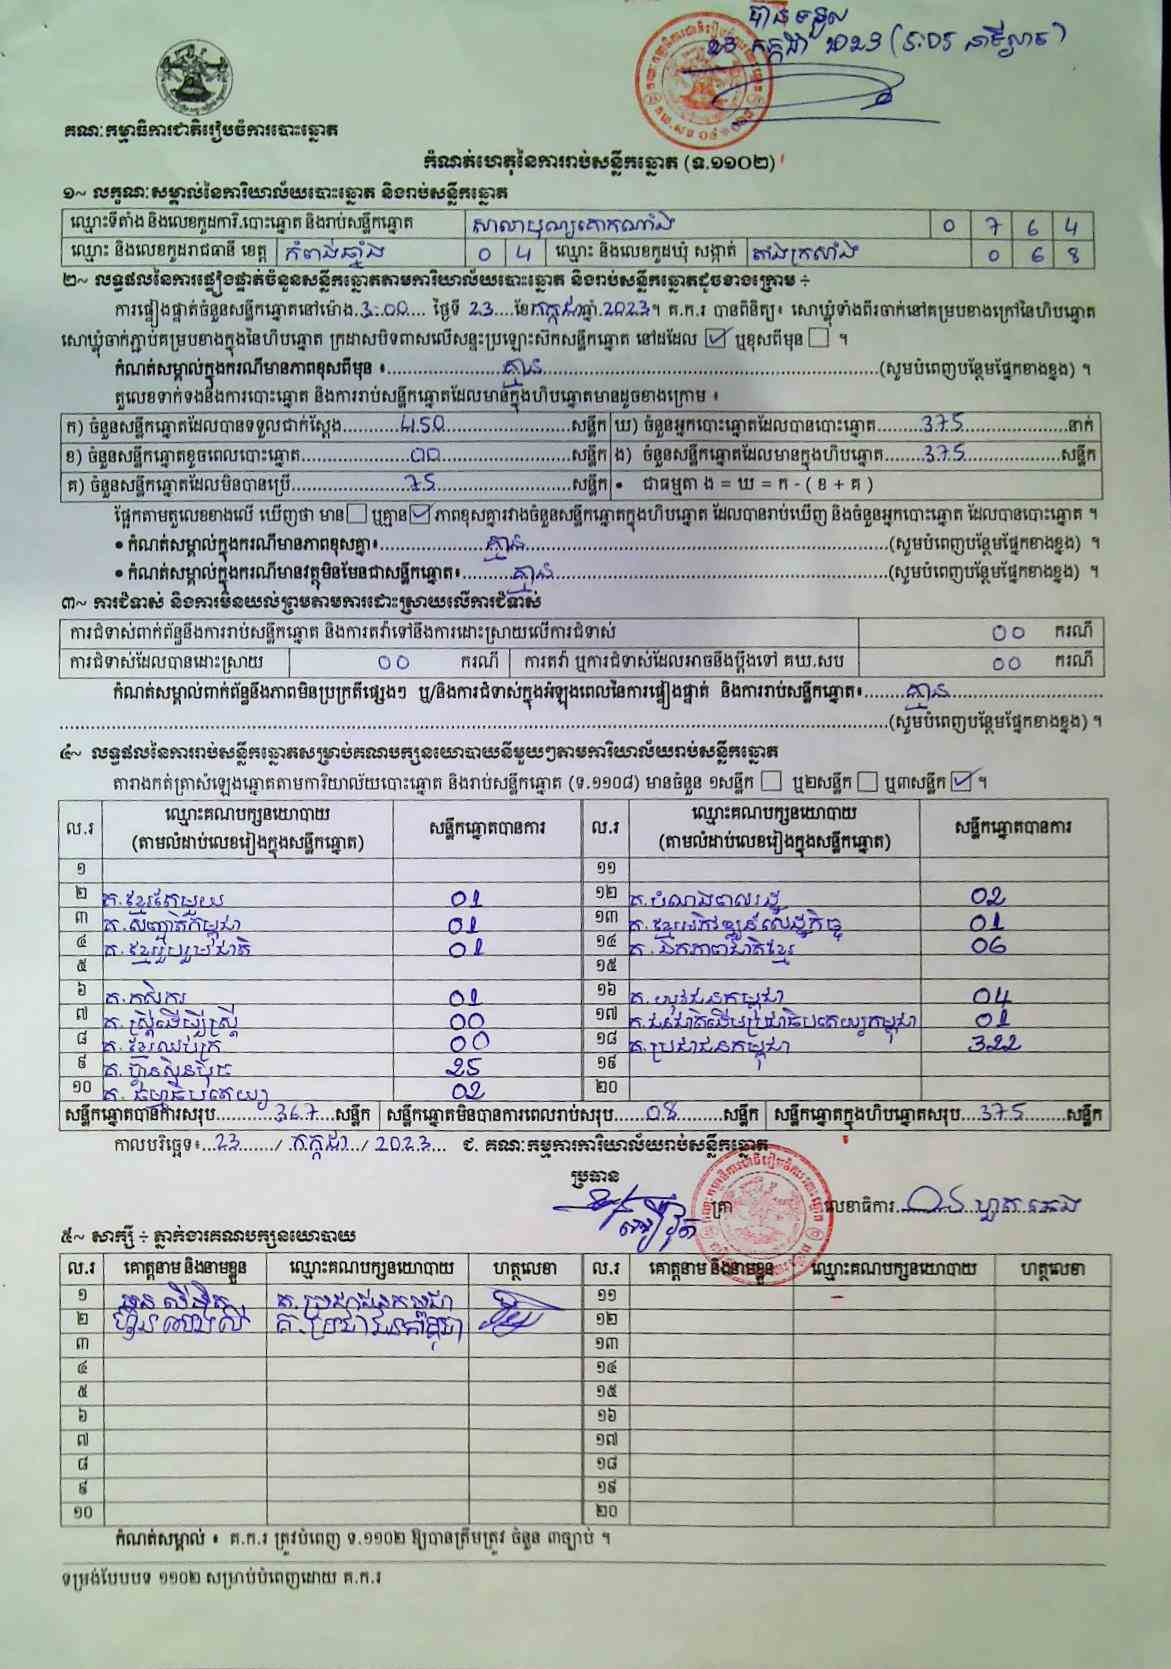 បានទទួល
23 កក្កដា 2023 (5:05 នាទីល្ងាច)
គណៈកម្មាធិការជាតិរៀបចំការបោះឆ្នោត
កំណត់ហេតុនៃការរាប់សន្លឹកឆ្នោត (ទ.១១០២)
១~ លក្ខណៈសម្គាល់នៃការិយាល័យបោះឆ្នោត និងរាប់សន្លឹកឆ្នោត
ឈ្មោះទីតាំង និងលេខកូដការិ.បោះឆ្នោត និងរាប់សន្លឹកឆ្នោត សាលាបុណ្យគោកណាំង 0 7 6 4
ឈ្មោះ និងលេខកូដរាជធានី ខេត្ត កំពង់ឆ្នាំង 0 4 ឈ្មោះ និងលេខកូដឃុំ សង្កាត់ តាំងក្រសាំង 0 6 8
២~ លទ្ធផលនៃការផ្ទៀងផ្ទាត់ចំនួនសន្លឹកឆ្នោតតាមការិយាល័យបោះឆ្នោត និងរាប់សន្លឹកឆ្នោតដូចខាងក្រោម ÷
ការផ្ទៀងផ្ទាត់ចំនួនសន្លឹកឆ្នោតនៅម៉ោង.3:00.... ថ្ងៃទី 23....ខែកក្កដាឆ្នាំ.2023។ គ.ក.រ បានពិនិត្យ៖ សោឃ្លុំទាំងពីរចាក់នៅគម្របខាងក្រៅនៃហិបឆ្នោត
សោឃ្លុំចាក់ភ្ជាប់គម្របខាងក្នុងនៃហិបឆ្នោត ក្រដាសបិទពាសលើសន្ទះប្រឡោះស៊កសន្លឹកឆ្នោត នៅដដែល ☑ ឬខុសពីមុន ☐ ។
កំណត់សម្គាល់ក្នុងករណីមានភាពខុសពីមុន ៖ គ្មាន (សូមបំពេញបន្ថែមផ្នែកខាងខ្នង) ។
តួលេខទាក់ទងនឹងការបោះឆ្នោត និងការរាប់សន្លឹកឆ្នោតដែលមានក្នុងហិបឆ្នោតមានដូចខាងក្រោម ៖
ក) ចំនួនសន្លឹកឆ្នោតដែលបានទទួលជាក់ស្តែង 450 សន្លឹក ឃ) ចំនួនអ្នកបោះឆ្នោតដែលបានបោះឆ្នោត 375 នាក់
ខ) ចំនួនសន្លឹកឆ្នោតខូចពេលបោះឆ្នោត 00 សន្លឹក ង) ចំនួនសន្លឹកឆ្នោតដែលមានក្នុងហិបឆ្នោត 375 សន្លឹក
គ) ចំនួនសន្លឹកឆ្នោតដែលមិនបានប្រើ 75 សន្លឹក • ជាធម្មតា ង = ឃ = ក - ( ខ + គ )
ផ្អែកតាមតួលេខខាងលើ ឃើញថា មាន☐ ឬគ្មាន☑ ភាពខុសគ្នារវាងចំនួនសន្លឹកឆ្នោតក្នុងហិបឆ្នោត ដែលបានរាប់ឃើញ និងចំនួនអ្នកបោះឆ្នោត ដែលបានបោះឆ្នោត ។
• កំណត់សម្គាល់ក្នុងករណីមានភាពខុសគ្នា៖ គ្មាន (សូមបំពេញបន្ថែមផ្នែកខាងខ្នង) ។
• កំណត់សម្គាល់ក្នុងករណីមានវត្ថុមិនមែនជាសន្លឹកឆ្នោត៖ គ្មាន (សូមបំពេញបន្ថែមផ្នែកខាងខ្នង) ។
៣~ ការជំទាស់ និងការមិនយល់ព្រមតាមការដោះស្រាយលើការជំទាស់
ការជំទាស់ពាក់ព័ន្ធនឹងការរាប់សន្លឹកឆ្នោត និងការតវ៉ាទៅនឹងការដោះស្រាយលើការជំទាស់ 00 ករណី
ការជំទាស់ដែលបានដោះស្រាយ 00 ករណី ការតវ៉ា ឬការជំទាស់ដែលអាចនឹងប្តឹងទៅ គឃ.សប 00 ករណី
កំណត់សម្គាល់ពាក់ព័ន្ធនឹងភាពមិនប្រក្រតីផ្សេងៗ ឬ/និងការជំទាស់ក្នុងអំឡុងពេលនៃការផ្ទៀងផ្ទាត់ និងការរាប់សន្លឹកឆ្នោត៖ គ្មាន
(សូមបំពេញបន្ថែមផ្នែកខាងខ្នង) ។
៤~ លទ្ធផលនៃការរាប់សន្លឹកឆ្នោតសម្រាប់គណបក្សនយោបាយនីមួយៗតាមការិយាល័យរាប់សន្លឹកឆ្នោត
តារាងកត់ត្រាសំឡេងឆ្នោតតាមការិយាល័យបោះឆ្នោត និងរាប់សន្លឹកឆ្នោត (ទ.១១០៨) មានចំនួន ១សន្លឹក ☐ ឬ២សន្លឹក ☐ ឬ៣សន្លឹក ☑ ។
ល.រ ឈ្មោះគណបក្សនយោបាយ (តាមលំដាប់លេខរៀងក្នុងសន្លឹកឆ្នោត) សន្លឹកឆ្នោតបានការ ល.រ ឈ្មោះគណបក្សនយោបាយ (តាមលំដាប់លេខរៀងក្នុងសន្លឹកឆ្នោត) សន្លឹកឆ្នោតបានការ
១ ១១
២ គ.ខ្មែរតែមួយ 01 ១២ គ.បំណងពលរដ្ឋ 02
៣ គ.សញ្ជាតិកម្ពុជា 01 ១៣ គ.ខ្មែរអភិវឌ្ឍន៍សេដ្ឋកិច្ច 01
៤ គ.ខ្មែររួបរួមជាតិ 01 ១៤ គ.ឯកភាពជាតិខ្មែរ 06
៥ ១៥
៦ គ.កសិករ 01 ១៦ គ.យុវជនកម្ពុជា 04
៧ គ.ស្ត្រីដើម្បីស្ត្រី 00 ១៧ គ.ជនជាតិដើមប្រជាធិបតេយ្យកម្ពុជា 01
៨ គ.ខ្មែរឈប់ក្រ 00 ១៨ គ.ប្រជាជនកម្ពុជា 322
៩ គ.ហ៊្វុនស៊ិនប៉ិច 25 ១៩
១០ គ.ធម្មាធិបតេយ្យ 02 ២០
សន្លឹកឆ្នោតបានការសរុប 367 សន្លឹក សន្លឹកឆ្នោតមិនបានការពេលរាប់សរុប 08 សន្លឹក សន្លឹកឆ្នោតក្នុងហិបឆ្នោតសរុប 375 សន្លឹក
កាលបរិច្ឆេទ៖ 23 / កក្កដា / 2023 ជ. គណៈកម្មការការិយាល័យរាប់សន្លឹកឆ្នោត
ប្រធាន ត្រា លេខាធិការ
៥~ សាក្សី ÷ ភ្នាក់ងារគណបក្សនយោបាយ
ល.រ គោត្តនាម និងនាមខ្លួន ឈ្មោះគណបក្សនយោបាយ ហត្ថលេខា ល.រ គោត្តនាម និងនាមខ្លួន ឈ្មោះគណបក្សនយោបាយ ហត្ថលេខា
១ គ.ប្រជាជនកម្ពុជា ១១
២ គ.ប្រជាជនកម្ពុជា ១២
៣ ១៣
៤ ១៤
៥ ១៥
៦ ១៦
៧ ១៧
៨ ១៨
៩ ១៩
១០ ២០
កំណត់សម្គាល់ ៖ គ.ក.រ ត្រូវបំពេញ ទ.១១០២ ឱ្យបានត្រឹមត្រូវ ចំនួន ៣ច្បាប់ ។
ទម្រង់បែបបទ ១១០២ សម្រាប់បំពេញដោយ គ.ក.រ